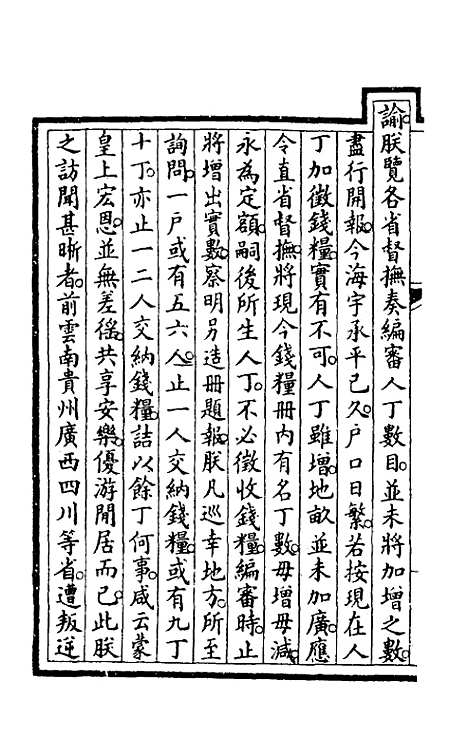 諭朕覽各省督撫奏編審人丁數目。並未將加增之數。
盡行開報。今海宇承平已久。戶口日繁。若按現在人
丁加徵錢糧。實有不可。人丁雖增。地畝並未加廣。應
令直省督撫。將現今錢糧冊內有名丁數。毋增毋減。
永為定額。嗣後所生人丁。不必徵收錢糧。編審時。止
將增出實數。察明另造冊題報。朕凡巡幸地方。所至
詢問。一戶或有五六人。止一人交納錢糧。或有九丁
十丁。亦止一二人交納錢糧。詰以餘丁何事。咸云蒙
皇上宏恩。並無差徭。共享安樂。優游閒居而已。此朕
之訪聞甚晰者。前雲南貴州廣西四川等省。遭叛逆